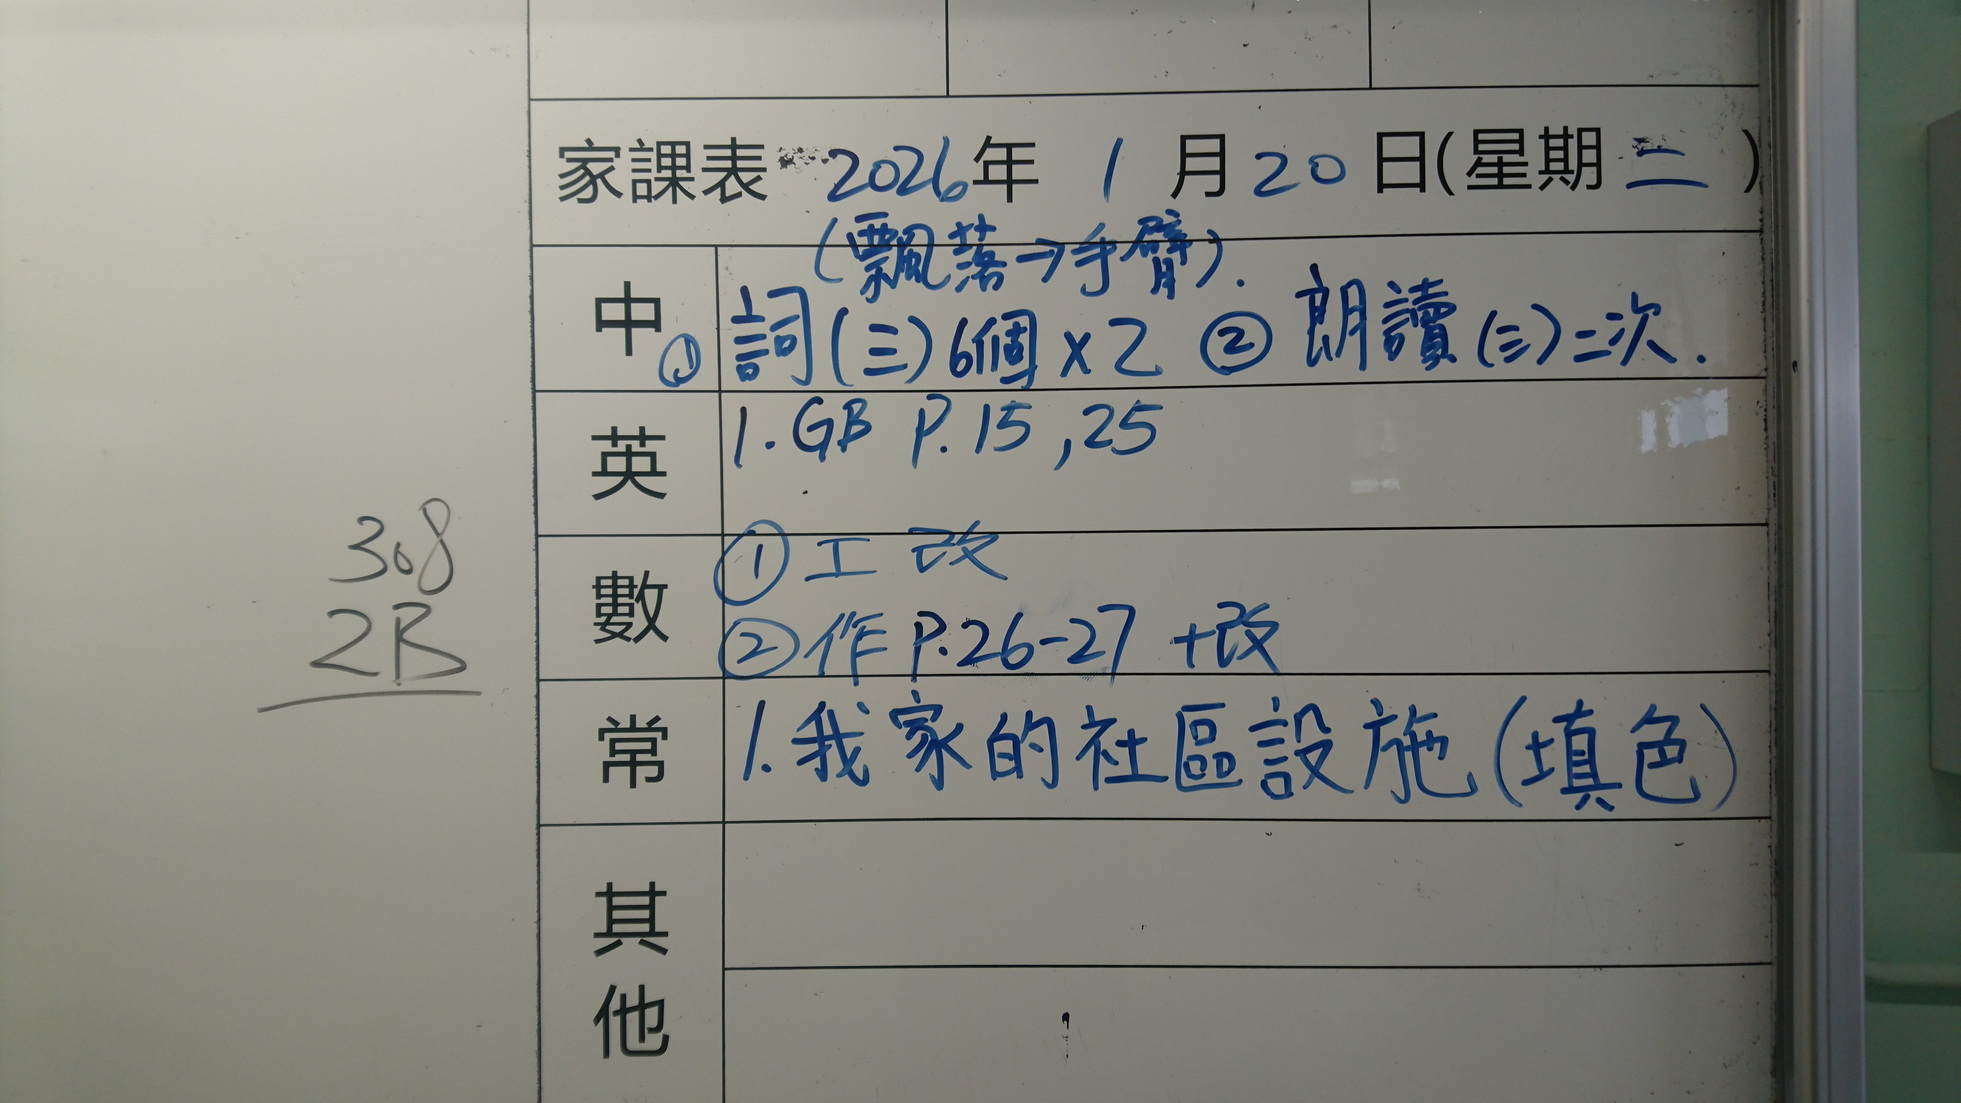 家課表 2026年 1月20日(星期二)
(飄落→手臂).
中 ①詞(三)6個×2 ②朗讀(三)二次.
英 1.GB P.15,25
數 ①工改
②作P.26-27 +改
常 1.我家的社區設施(填色)
其他
308
2B